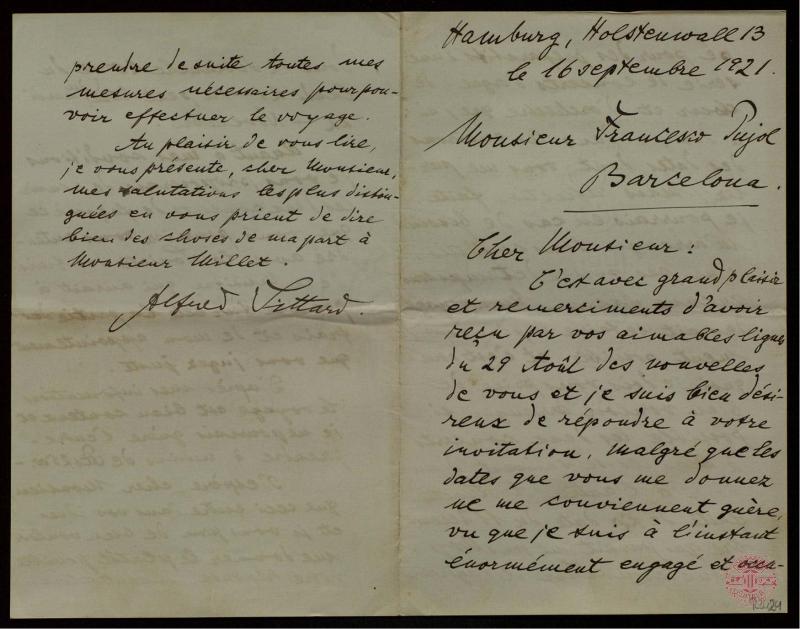 Hamburg, Holstenwall 13
le 16 septembre 1921.
Monsieur Francesco Pujol
Barcelona.
Cher Monsieur:
C'est avec grand plaisir
et remerciments d'avoir
reçu par vos aimables lignes
du 29 Août des nouvelles
de vous et je suis bien dési-
reux de répondre à votre
invitation, malgré que les
dates que vous me donnez
ne me conviennent guère,
vu que je suis à l'instant
énormément engagé et occu-
prendre de suite toutes mes
mesures nécessaires pour pou-
voir effectuer le voyage.
Au plaisir de vous lire,
je vous présente, cher Monsieur,
mes salutations les plus distin-
guées en vous prient de dire
bien des choses de ma part à
Monsieur Millet.
Alfred Sittard.